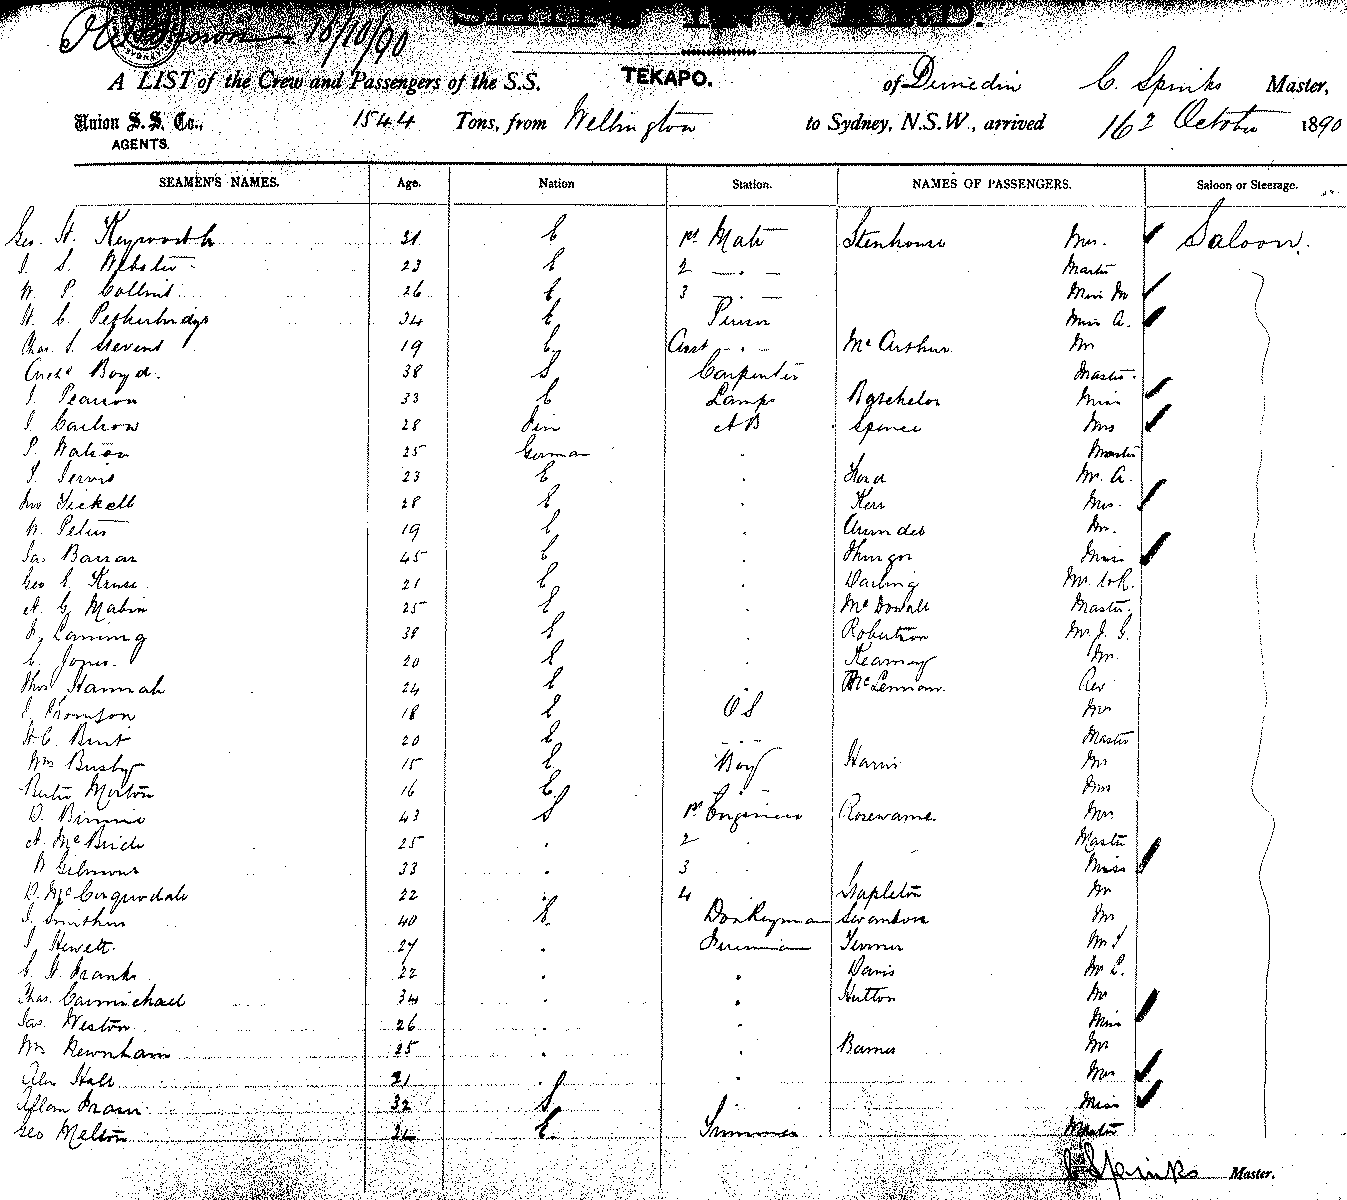 18/10/90
A LIST of the Crew and Passengers of the S.S. TEKAPO. of Dunedin C. Spinks Master,
Union S. S. Co., AGENTS. 1544 Tons, from Wellington to Sydney, N.S.W., arrived 16 October 1890
SEAMEN'S NAMES. Age. Nation Station. NAMES OF PASSENGERS. Saloon or Steerage.
Geo. H. Keyworth 31 E 1st Mate Stenhouse Mrs. Saloon.
J. S. Webster 23 E 2 — . — Master
W. P. Collins 26 E 3 — . — Miss M
H. C. Petherbridge 34 E Purser Miss A.
Chas. S. Stevens 19 E Asst - . - McArthur Mr
Archd Boyd. 38 S Carpenter Master.
J. Pearson 33 E Lamps Batchelor Miss
J. Carlson 28 Fin AB Spence Mrs
P. Watson 25 German . Master
J. Jervis 23 E . Ford Mr. A.
Jno Tickell 28 E . Kerr Mrs.
W. Peters 19 E . Arundel Mr.
Jas Barrar 45 E . Miss
Geo E. Kruse. 21 E . Darling Mr.
A. G. Mabin 25 E . McDowall Master.
Laming 38 E . Robertson Mr J. G.
E. Jones. 20 E . Kearney Mr.
Thos Hannah 24 E . McLennan. Rev
J. Thomson 18 E OS Mr
H. C. Bent 20 E - . . - Master
Wm Busby 15 E Boy Harris Mr
Morton 16 E. Mrs
D. Binnie 43 S 1st Engineer Rosewarne. Mrs
A. McBride 25 . 2 . Master
W Gilmour 33 . 3 . Miss
D. McCorquodale 22 . 4 Stapleton Mr
J. Smithers 40 E. Donkeyman Swanton Mr
J. Hewett. 27 . Fireman Turner Mr J
E. H. Franks 22 . . Davis Mr L.
Chas. Carmichael 34 . . Hutton Mr
Jas. Weston 26 . . Miss
Wm Newnham 25 . . Barnes Mr
Alex Hall 21 . . Mrs
Allan Fraser 32 S . Miss
Geo Melton E. Trimmer Master
C Spinks Master.